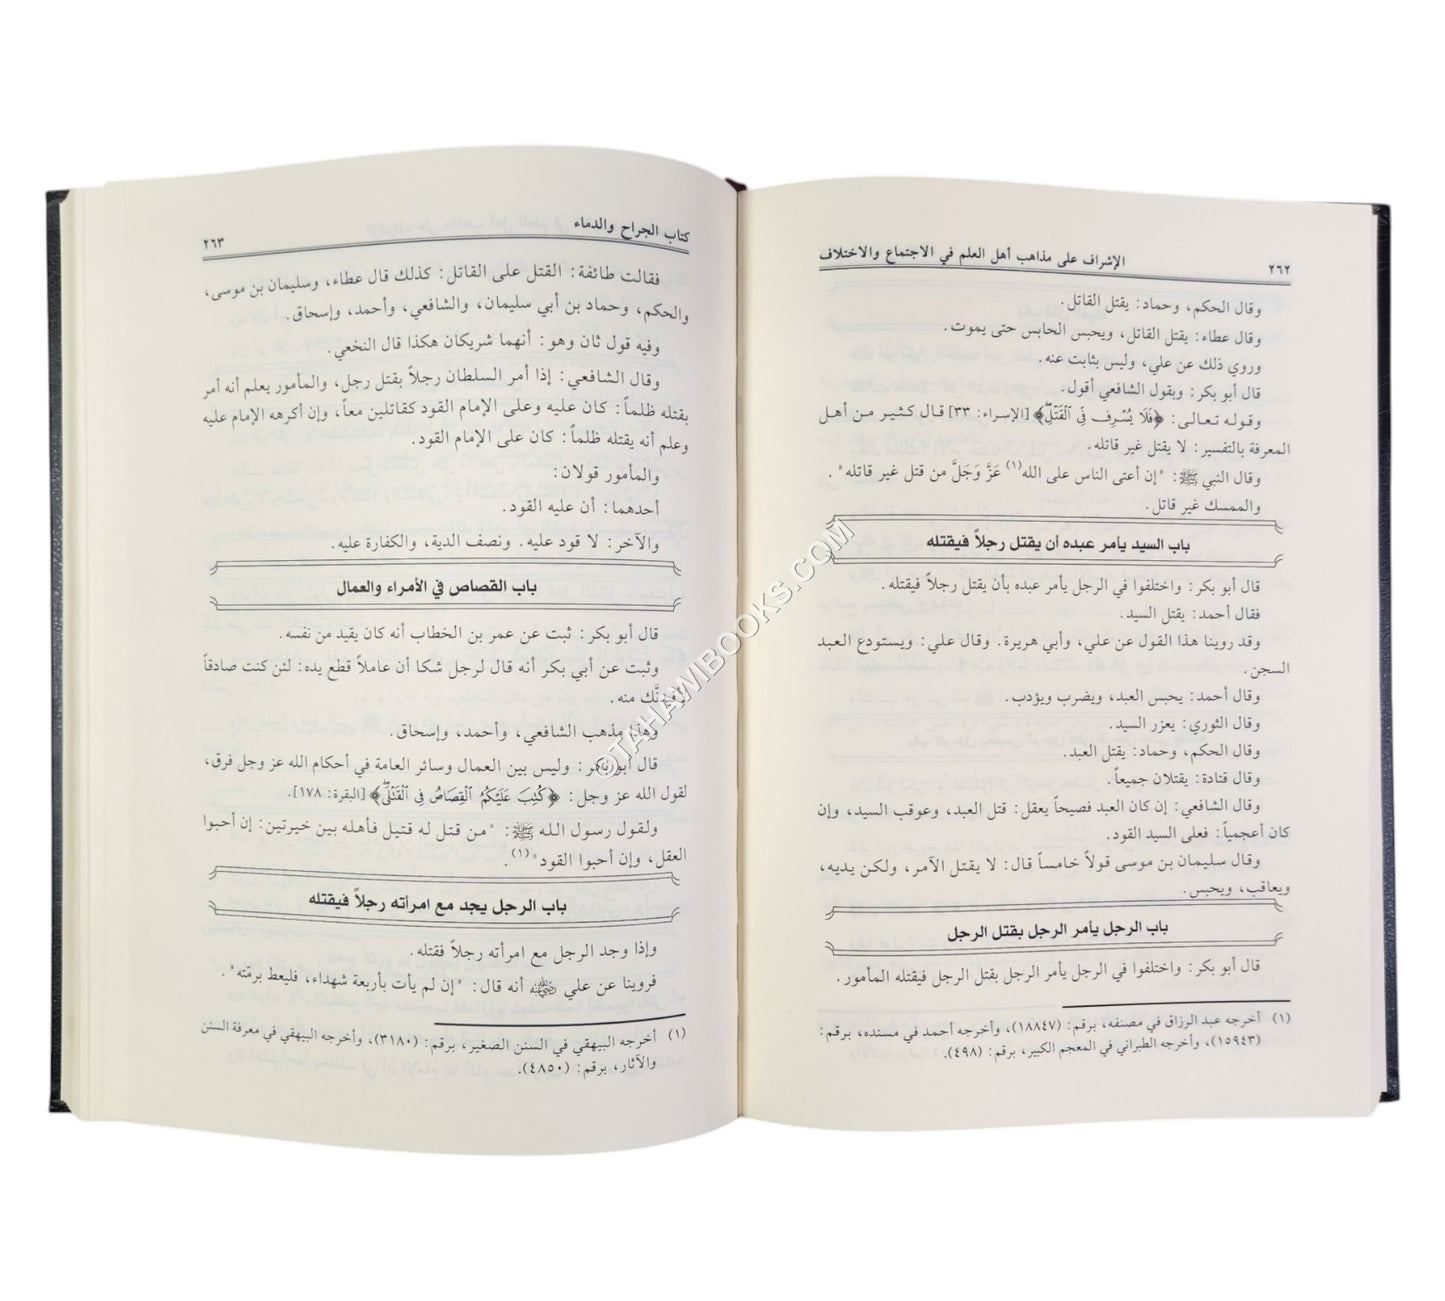 ٢٦٢ الإشراف على مذاهب أهل العلم في الاجتماع والاختلاف
وقال الحكم، وحماد: يقتل القاتل.
وقال عطاء: يقتل القاتل، ويحبس الحابس حتى يموت.
وروي ذلك عن علي، وليس بثابت عنه.
قال أبو بكر: وبقول الشافعي أقول.
وقوله تعالى: ﴿فَلَا يُسْرِف فِّى ٱلْقَتْلِ﴾ [الإسراء: ٣٣] قال كثير من أهل
المعرفة بالتفسير: لا يقتل غير قاتله.
وقال النبي ﷺ: "إن أعتى الناس على الله(١) عَزَّ وَجَلَّ من قتل غير قاتله".
والممسك غير قاتل.
باب السيد يأمر عبده أن يقتل رجلاً فيقتله
قال أبو بكر: واختلفوا في الرجل يأمر عبده بأن يقتل رجلاً فيقتله.
فقال أحمد: يقتل السيد.
وقد روينا هذا القول عن علي، وأبي هريرة. وقال علي: ويستودع العبد
السجن.
وقال أحمد: يحبس العبد، ويضرب ويؤدب.
وقال الثوري: يعزر السيد.
وقال الحكم، وحماد: يقتل العبد.
وقال قتادة: يقتلان جميعاً.
وقال الشافعي: إن كان العبد فصيحاً يعقل: قتل العبد، وعوقب السيد، وإن
كان أعجمياً: فعلى السيد القود.
وقال سليمان بن موسى قولاً خامساً قال: لا يقتل الآمر، ولكن يديه،
ويعاقب، ويحبس.
باب الرجل يأمر الرجل بقتل الرجل
قال أبو بكر: واختلفوا في الرجل يأمر الرجل بقتل الرجل فيقتله المأمور.
(١) أخرجه عبد الرزاق في مصنفه، برقم: (١٨٨٤٧)، وأخرجه أحمد في مسنده، برقم:
(١٥٩٤٣)، وأخرجه الطبراني في المعجم الكبير، برقم: (٤٩٨).
كتاب الجراح والدماء ٢٦٣
فقالت طائفة: القتل على القاتل: كذلك قال عطاء، وسليمان بن موسى،
والحكم، وحماد بن أبي سليمان، والشافعي، وأحمد، وإسحاق.
وفيه قول ثان وهو: أنهما شريكان هكذا قال النخعي.
وقال الشافعي: إذا أمر السلطان رجلاً بقتل رجل، والمأمور يعلم أنه أمر
بقتله ظلماً: كان عليه وعلى الإمام القود كقاتلين معاً، وإن أكرهه الإمام عليه
وعلم أنه يقتله ظلماً: كان على الإمام القود.
والمأمور قولان:
أحدهما: أن عليه القود.
والآخر: لا قود عليه. ونصف الدية، والكفارة عليه.
باب القصاص في الأمراء والعمال
قال أبو بكر: ثبت عن عمر بن الخطاب أنه كان يقيد من نفسه.
وثبت عن أبي بكر أنه قال لرجل شكا أن عاملاً قطع يده: لئن كنت صادقاً
لأقيدنَّك منه.
وهذا مذهب الشافعي، وأحمد، وإسحاق.
قال أبو بكر: وليس بين العمال وسائر العامة في أحكام الله عز وجل فرق،
لقول الله عز وجل: ﴿كُتِبَ عَلَيْكُمُ ٱلْقِصَاصُ فِى ٱلْقَتْلَى﴾ [البقرة: ١٧٨].
ولقول رسول الله ﷺ: "من قتل له قتيل فأهله بين خيرتين: إن أحبوا
العقل، وإن أحبوا القود"(١).
باب الرجل يجد مع امرأته رجلاً فيقتله
وإذا وجد الرجل مع امرأته رجلاً فقتله.
فروينا عن علي رضي الله عنه أنه قال: "إن لم يأت بأربعة شهداء، فليعط برمّته".
(١) أخرجه البيهقي في السنن الصغير، برقم: (٣١٨٠)، وأخرجه البيهقي في معرفة السنن
والآثار، برقم: (٤٨٥٠).
©TAHAWIBOOKS.COM